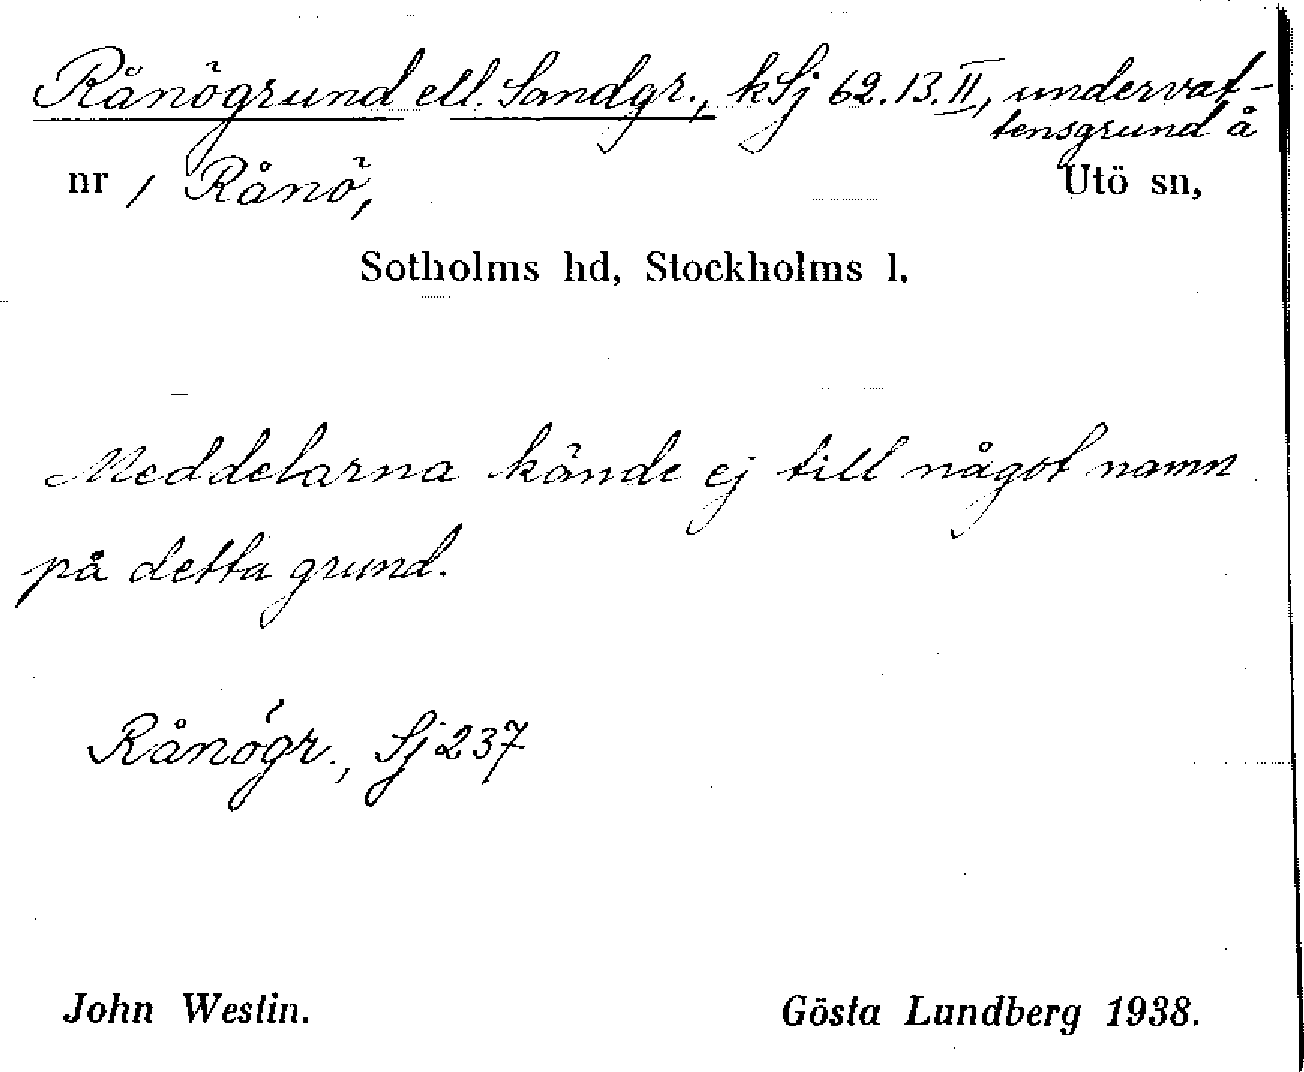 Rånögrund ell. Sandgr., kSj 62.13.II, undervat-
tensgrund å
nr 1 Rånö, Utö sn,
Sotholms hd, Stockholms l.
Meddelarna kände ej till något namn
på detta grund.
Rånögr., Sj 237
John Westin. Gösta Lundberg 1938.